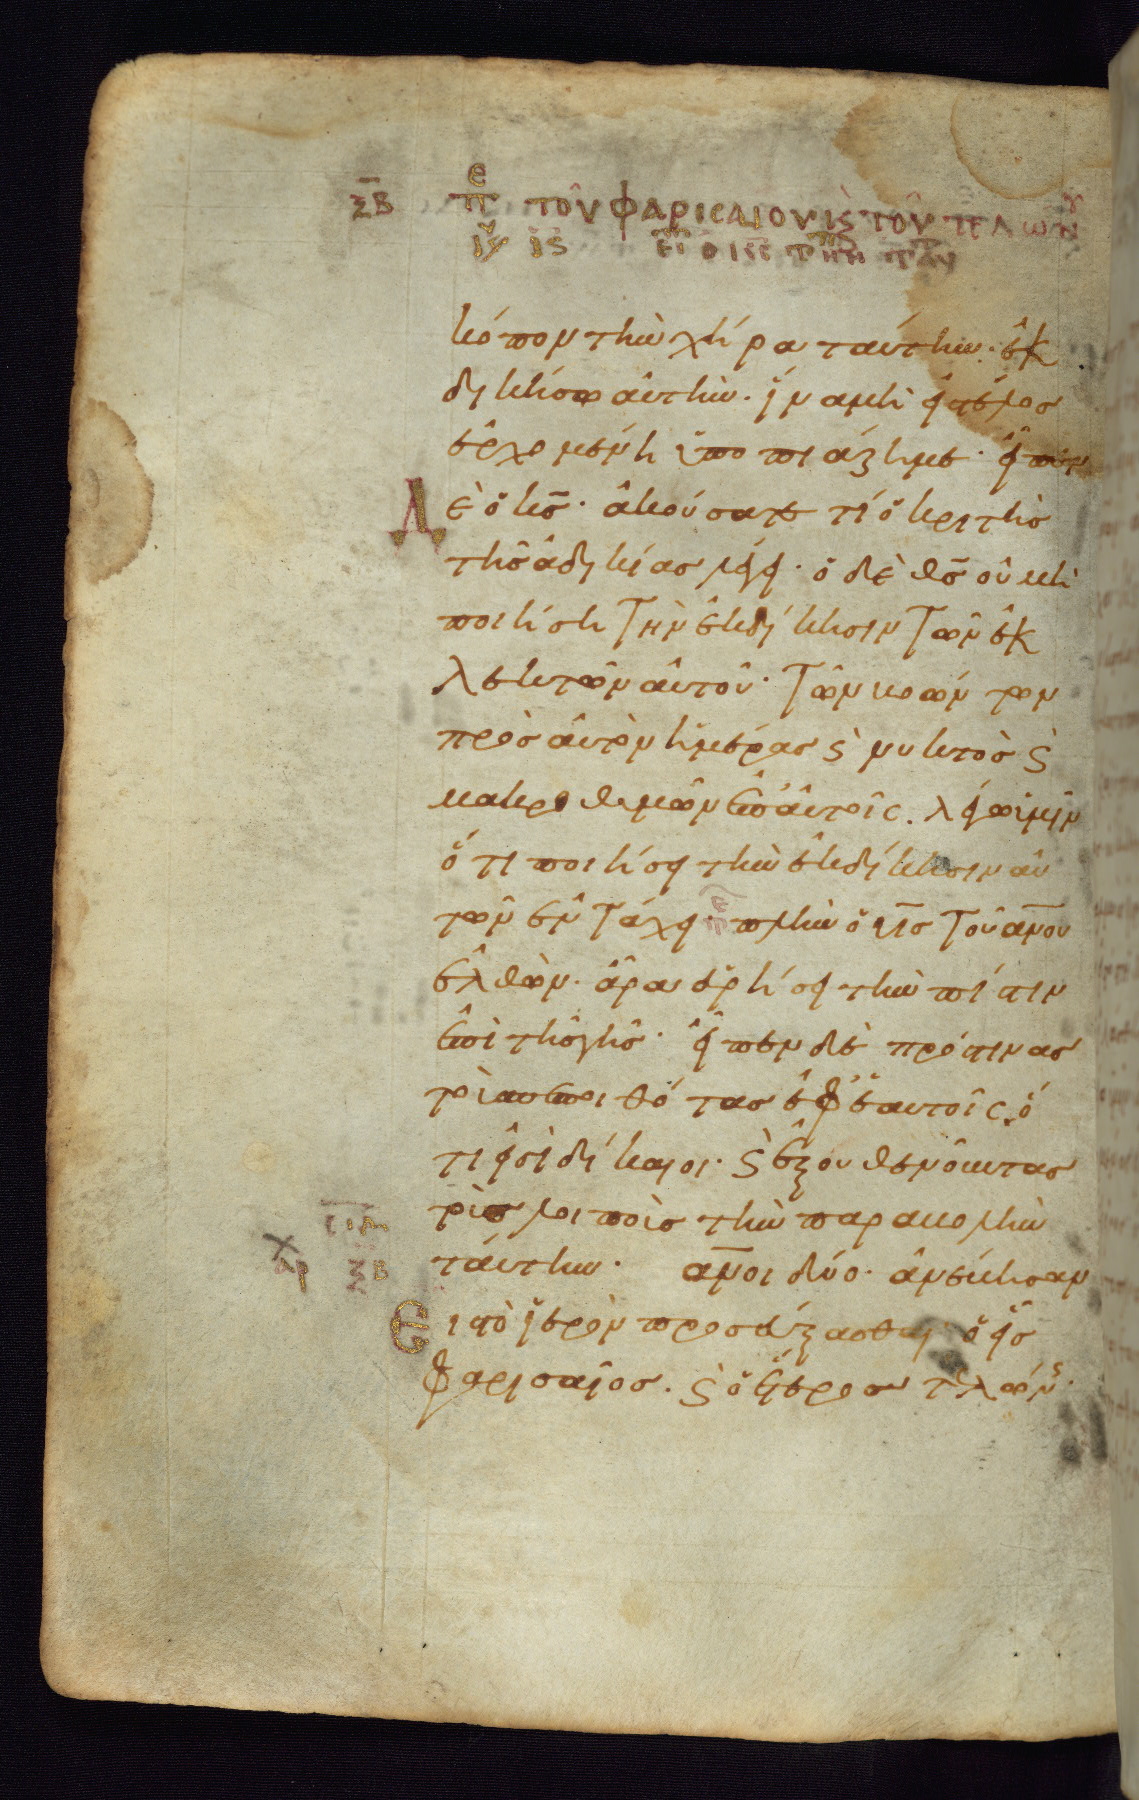 ξβ π̅ε̅ τοῦ φαρισαίου ϗ τοῦ τελών
κόπον τὴν χήραν ταύτην· ἐκ
δικήσω αὐτήν· ἵνα μὴ εἰς τέλος
ἐρχομένη ὑποπιάζη με· εἶπεν
Δὲ ὁ κ̅ς̅· ἀκούσατε τί ὁ κριτὴς
τῆς ἀδικίας λέγει· ὁ δὲ θ̅ς̅ οὐ μὴ
ποιήση τὴν ἐκδίκησιν τῶν ἐκ
λεκτῶν αὐτοῦ· τῶν βοώντων
πρὸς αὐτὸν ἡμέρας ϗ νυκτὸς ϗ
μακροθυμῶν ἐπ' αὐτοῖς. λέγω ὑμῖν
ὅτι ποιήσει τὴν ἐκδίκησιν αὐ
τῶν ἐν τάχει· πλὴν ὁ υ̅ι̅ς̅ τοῦ α̅ν̅ο̅υ̅
ἐλθὼν· ἆρα εὑρήσει τὴν πίστιν
ἐπὶ τῆς γῆς· εἶπεν δὲ πρός τινας
τοὺς πεποιθότας ἐφ' ἑαυτοῖς ὅ
τι εἰσὶ δίκαιοι· ϗ ἐξουθενοῦντας
τοὺς λοιποὺς τὴν παραβολὴν
ξβ ταύτην· α̅ν̅ο̅ι̅ δύο· ἀνέβησαν
Εἰς τὸ ἱερὸν προσεύξασθαι· ὁ εἷς
φαρισαῖος. ϗ ὁ ἕτερος τελώνης·